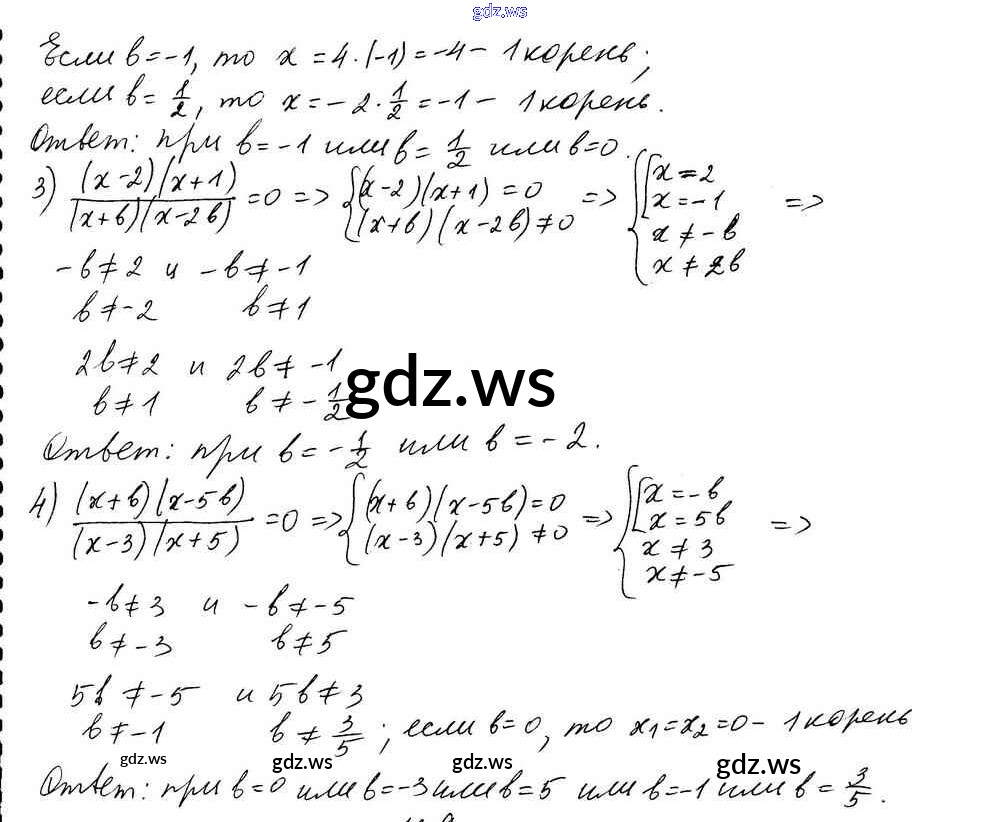 gdz.ws
Если b=-1, то x=4·(-1)=-4 - 1 корень;
если b=1/2, то x=-2·1/2=-1 - 1 корень.
Ответ: при b=-1 или b=1/2 или b=0.
3) (x-2)(x+1)/(x+b)(x-2b) =0 => {(x-2)(x+1)=0 (x+b)(x-2b)≠0 => {[x=2 x=-1 x≠-b x≠2b =>
-b≠2 и -b≠-1
b≠-2 b≠1
2b≠2 и 2b≠-1
b≠1 b≠-1/2
gdz.ws
Ответ: при b=-1/2 или b=-2.
4) (x+b)(x-5b)/(x-3)(x+5) =0 => {(x+b)(x-5b)=0 (x-3)(x+5)≠0 => {[x=-b x=5b x≠3 x≠-5 =>
-b≠3 и -b≠-5
b≠-3 b≠5
5b≠-5 и 5b≠3
b≠-1 b≠3/5; если b=0, то x₁=x₂=0 - 1 корень
gdz.ws gdz.ws gdz.ws gdz.ws
Ответ: при b=0 или b=-3 или b=5 или b=-1 или b=3/5.